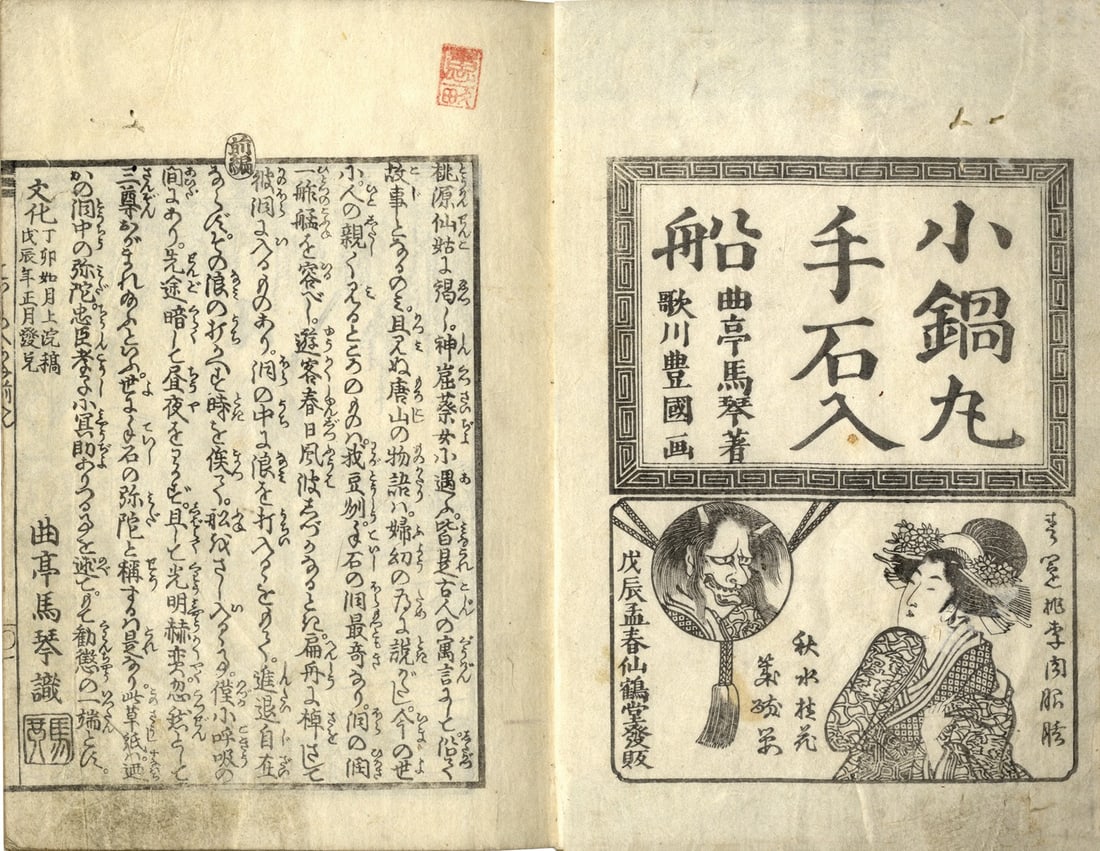 小鍋丸
手石入
船
曲亭馬琴著
歌川豊國画
秋水桂花
戊辰孟春仙鶴堂發販
前編
桃源仙姑に謁し。神崑蓁女に遇ふ。皆是古人の寓言にして。俗に
故事となるのミ。且見ぬ唐山の物語ハ。婦幼の為に説がたし。今の世
小人の親しく見るところのものハ。我豆刕手石の洞最奇なり。洞の濶
一舴艋を容べし。遊客春日風波しづかなるとき。扁舟に棹さして
彼洞に入るものあり。洞の中に浪を打入るゝをもて。進退自在
ならず。その浪の打かへす時を俟て。船をさし入るゝに。僅小呼吸の
間にあり。先途暗して昼夜をわかたず。且して光明赫奕忽然として
三尊をがまれ給ふといふ。世に手石の弥陀と稱するハ是なり。此草紙ハ。廼
かの洞中の弥陀。忠臣孝子に冥助ありつる事を述て。もて勸懲の一端とす。
文化丁卯如月上浣稿
戊辰年正月發兌
曲亭馬琴識